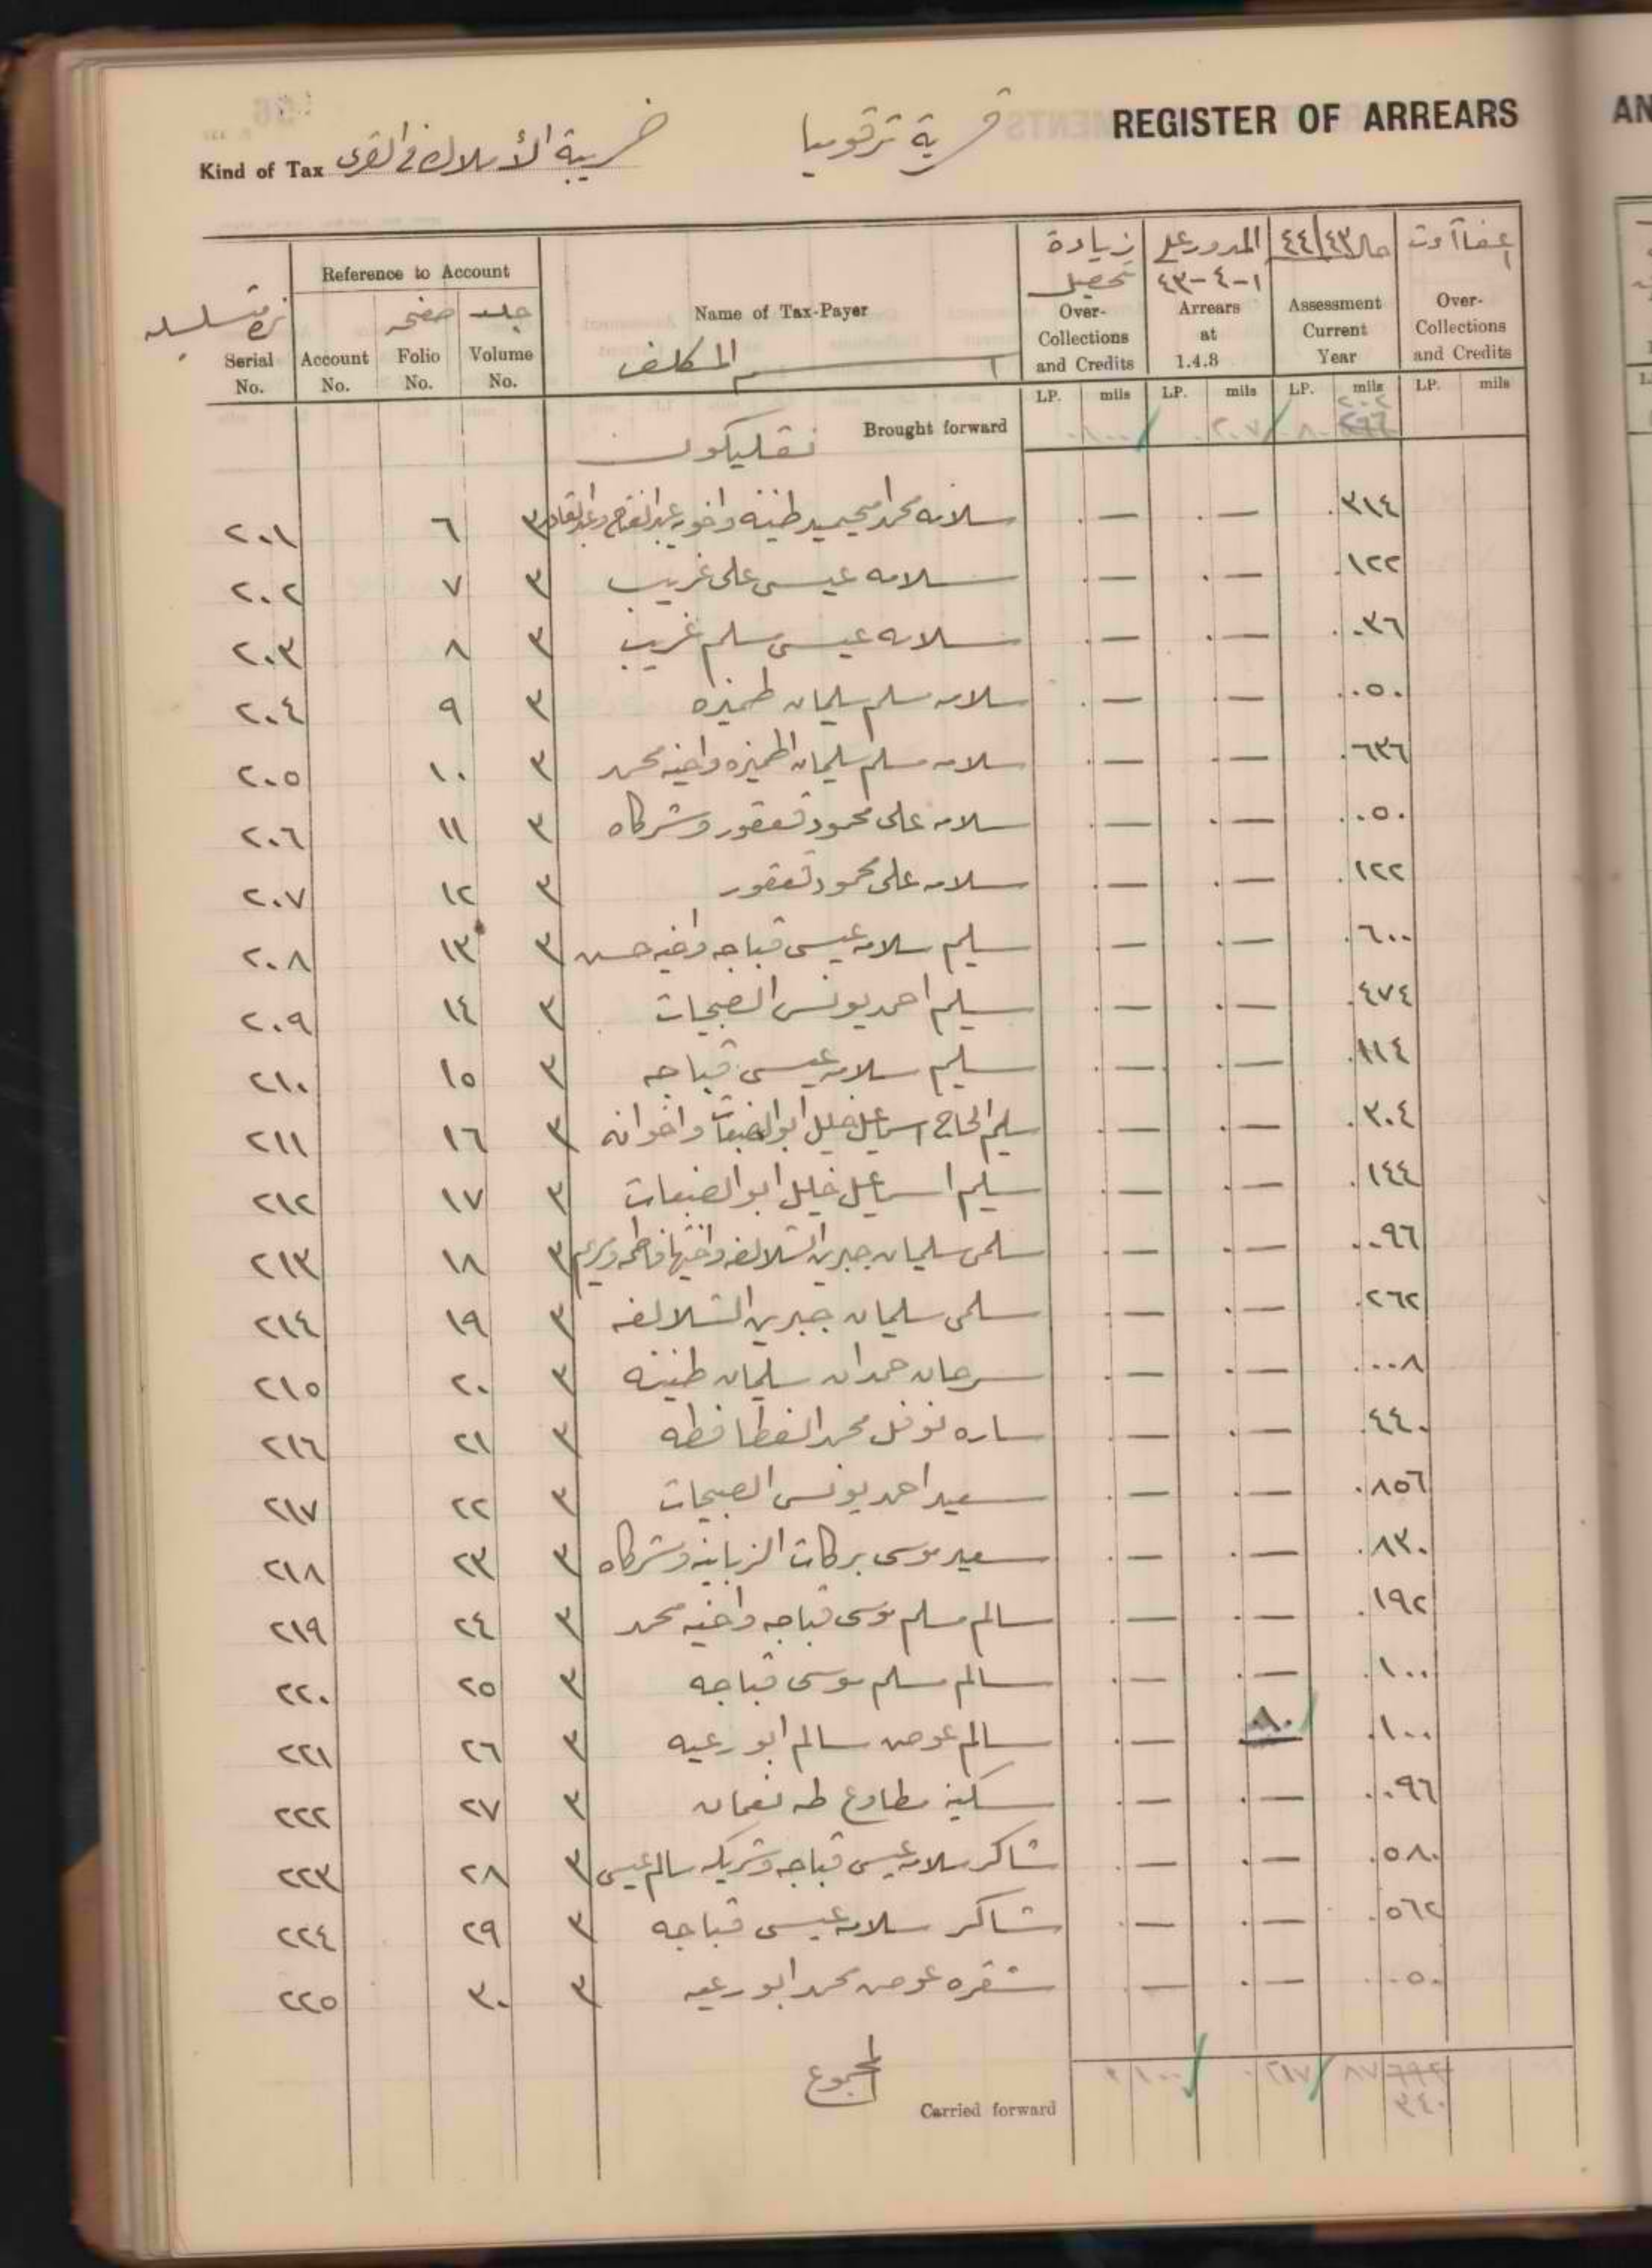 REGISTER OF ARREARS
قرية ترقوميا
Kind of Tax ضريبة الأملاك في القرى
Reference to Account
Serial No.
Account No.
صفحه Folio No.
جلد Volume No.
Name of Tax-Payer
اسم المكلف
زيادة تحصيل Over-Collections and Credits
المدور على ١-٤-٤٣ Arrears at 1.4.8
٤٤/٤٣ Assessment Current Year
Over-Collections and Credits
LP. mils LP. mils LP. mils LP. mils
Brought forward
٢٠١ ٦ ٣ سلامه محمد امحيميد طنينه واخويه عبدالفتاح وعبدالقادر — — ٣١٤
٢٠٢ ٧ ٣ سلامه عيسى على غريب — — ١٢٢
٢٠٣ ٨ ٣ سلامه عيسى سلم غريب — — ٠٣٦
٢٠٤ ٩ ٣ سلامه مسلم سليمان طميزه — — ٠٥٠
٢٠٥ ١٠ ٣ سلامه مسلم سليمان اطميزه واخيه محمد — — ٦٣٦
٢٠٦ ١١ ٣ سلامه على محمود قعقور وشركاه — — ٠٥٠
٢٠٧ ١٢ ٣ سلامه على محمود قعقور — — ١٢٢
٢٠٨ ١٣ ٣ سليم سلامه عيسى قباجه واخيه حسن — — ٦٠٠
٢٠٩ ١٤ ٣ سليم احمد يونس الصبحات — — ٤٧٤
٢١٠ ١٥ ٣ سليم سلامه عيسى قباجه — — ١١٤
٢١١ ١٦ ٣ سليم الحاج اسماعيل خليل ابو الضبعات واخوانه — — ٣٠٤
٢١٢ ١٧ ٣ سليم اسماعيل خليل ابو الضبعات — — ١٤٤
٢١٣ ١٨ ٣ سلمى سليمان جبرين الشلالفه واختيها فاطمه ومريم — — ٠٩٦
٢١٤ ١٩ ٣ سلمى سليمان جبرين الشلالفه — — ٢٦٢
٢١٥ ٢٠ ٣ سرحان حمدان سليمان طنينه — — ٠٠٨
٢١٦ ٢١ ٣ ساره نوفل محمد الفطافطه — — ٤٤٠
٢١٧ ٢٢ ٣ سعيد احمد يونس الصبحات — — ٨٥٦
٢١٨ ٢٣ ٣ سعيد موسى بركات الزباينه وشركاه — — ٨٣٠
٢١٩ ٢٤ ٣ سالم مسلم موسى قباجه واخيه محمد — — ١٩٢
٢٢٠ ٢٥ ٣ سالم مسلم موسى قباجه — — ١٠٠
٢٢١ ٢٦ ٣ سالم عوض سالم ابو رعيه — ٠٨٠ ١٠٠
٢٢٢ ٢٧ ٣ سكينه مطاوع طه نعمان — — ٠٩٦
٢٢٣ ٢٨ ٣ شاكر سلامه عيسى قباجه وشريكه سالم عيسى — — ٥٨٠
٢٢٤ ٢٩ ٣ شاكر سلامه عيسى قباجه — — ٥٦٢
٢٢٥ ٣٠ ٣ شقره عوض محمد ابو رعيه — — ٠٥٠
المجموع
Carried forward
٣٤٠